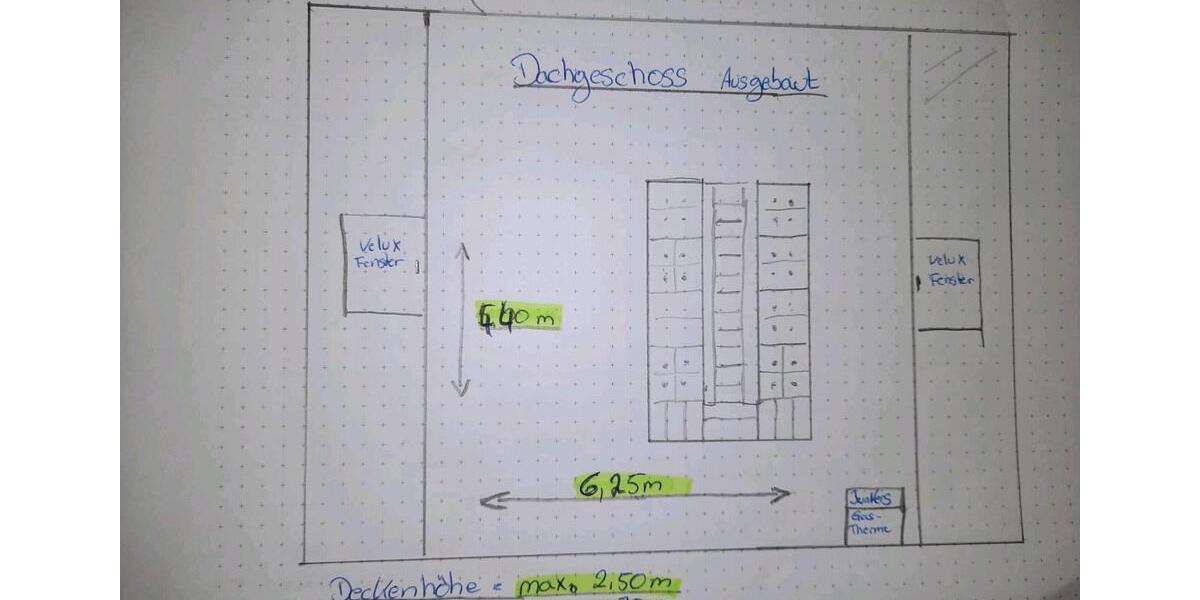 Dachgeschoss Ausgebaut
Velux
Fenster
Velux
Fenster
6,25m
Junkers
Gas-
Therme
Deckenhöhe = max. 2,50m